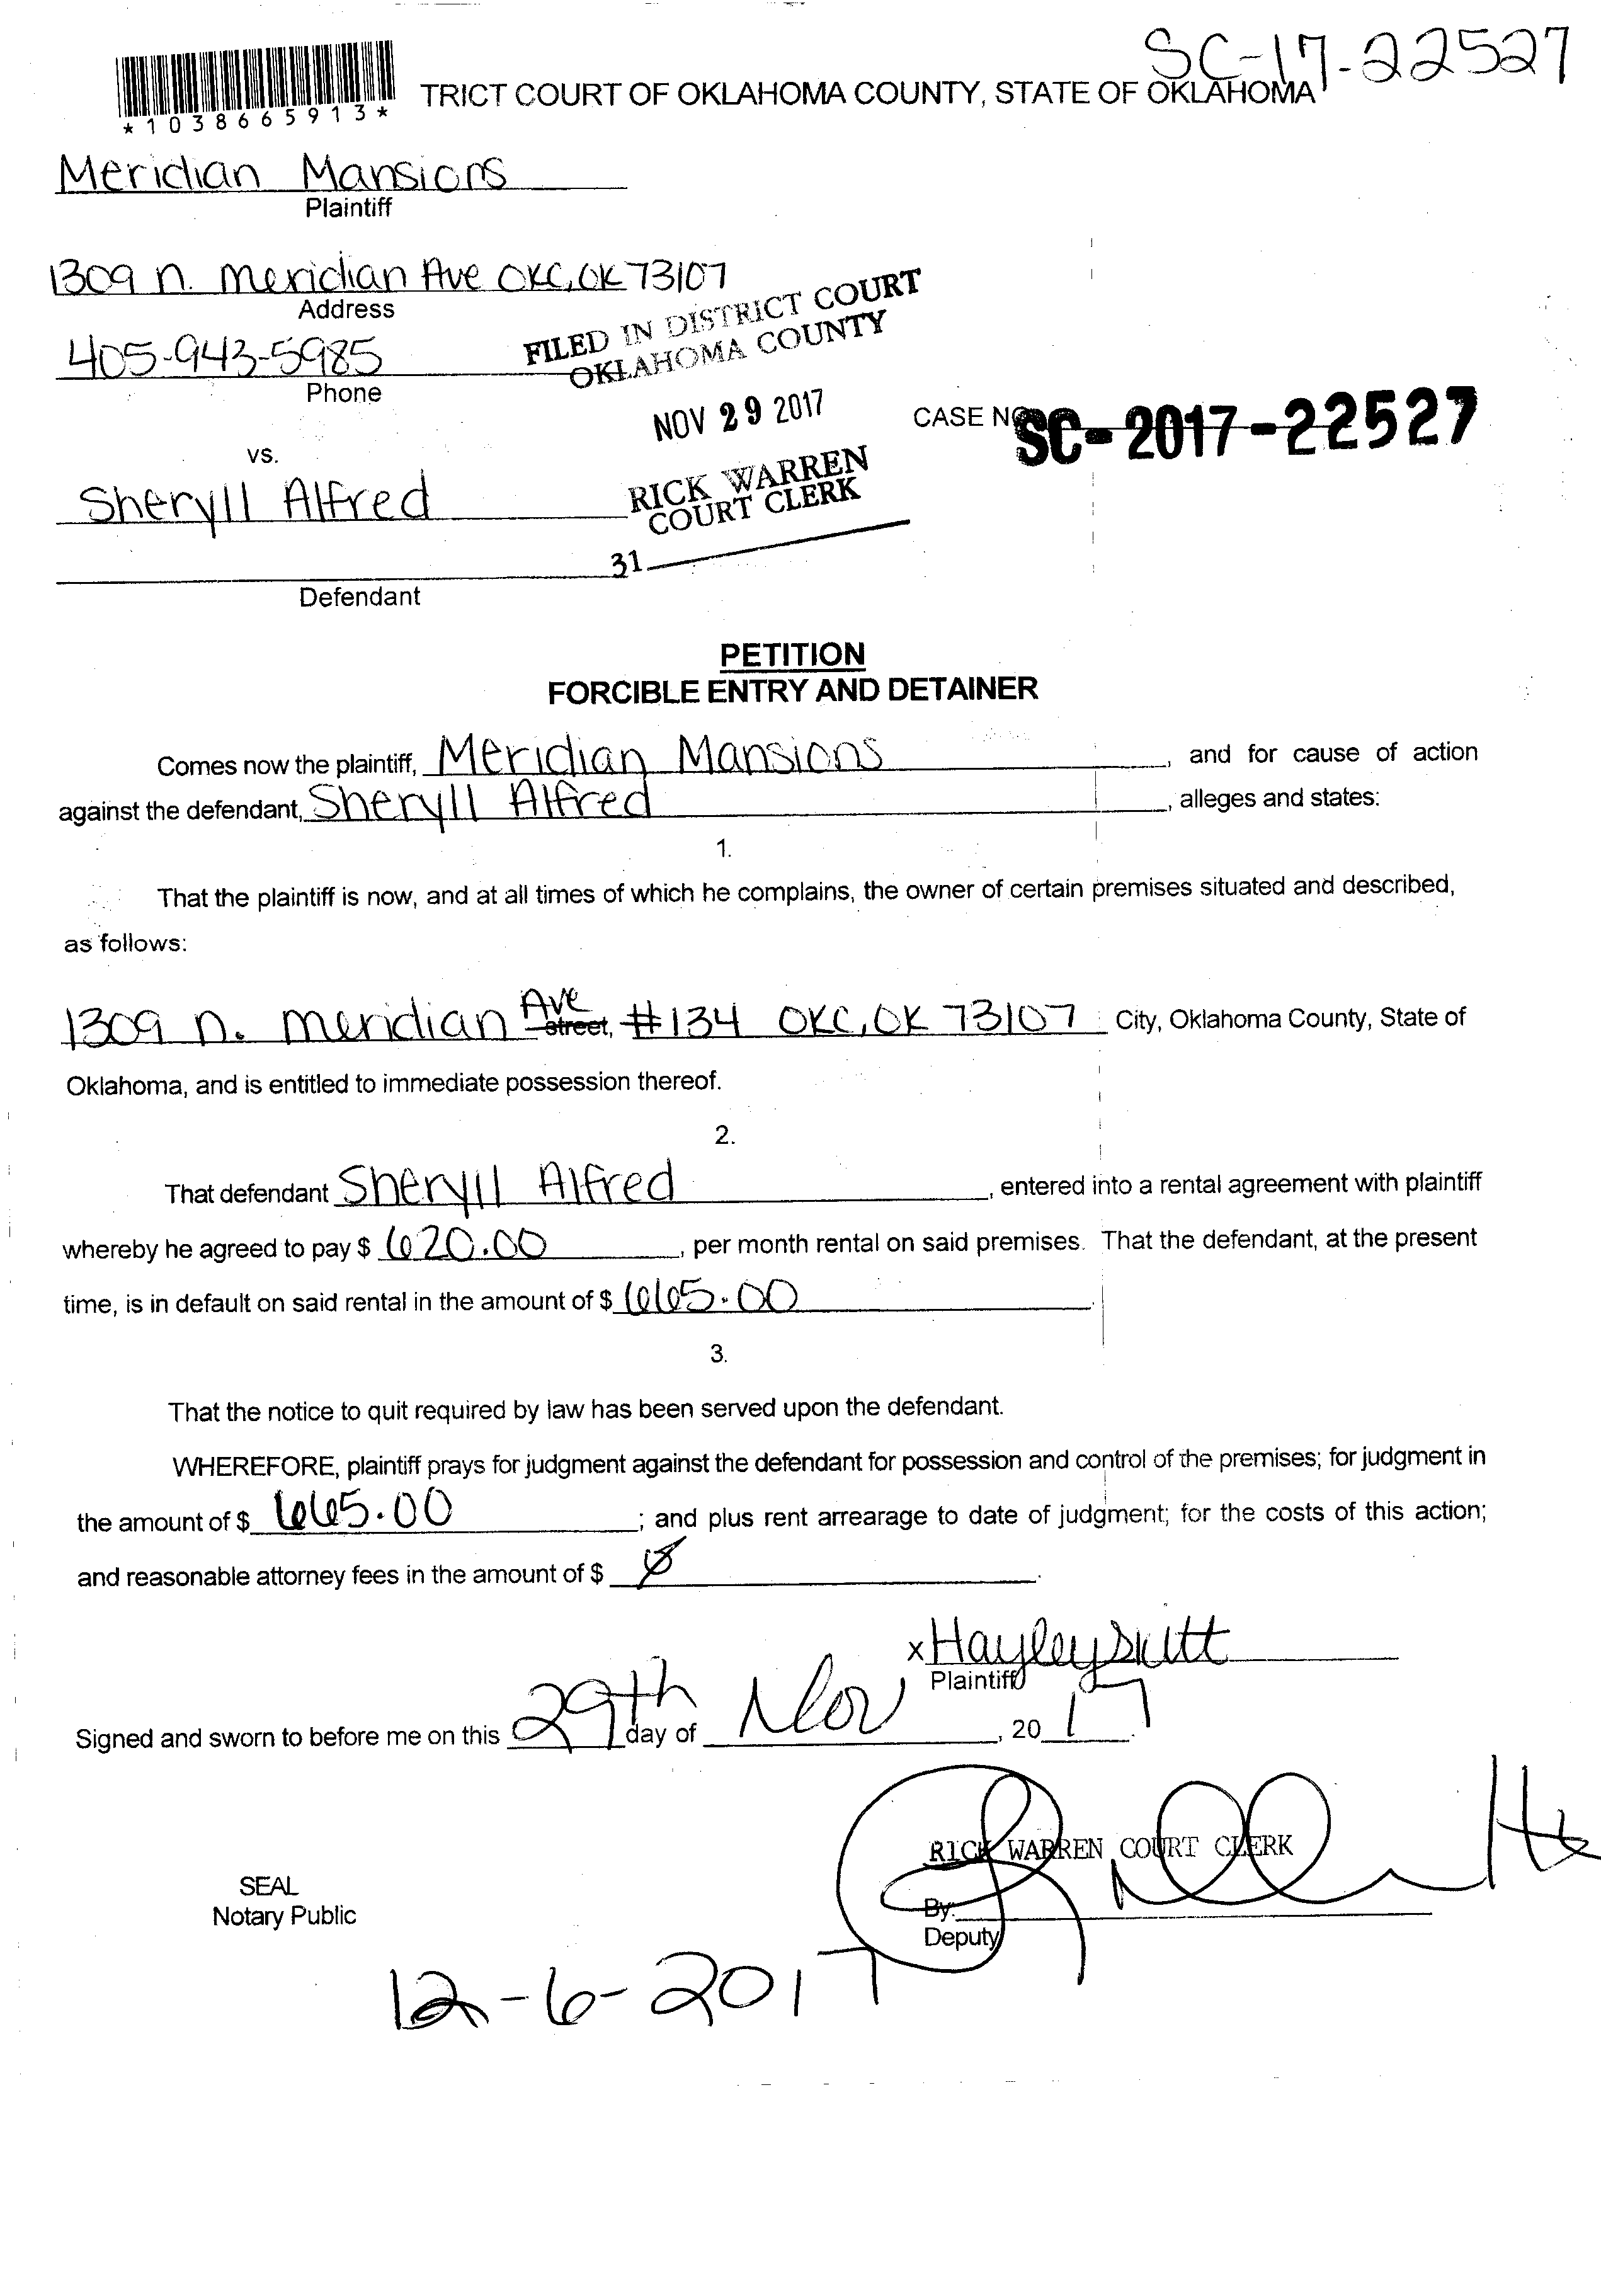 SC-17-22527
*1038665913*
TRICT COURT OF OKLAHOMA COUNTY, STATE OF OKLAHOMA
Meridian Mansions
Plaintiff
1309 n. Meridian Ave OKC, OK 73107
Address
405-943-5985
Phone
FILED IN DISTRICT COURT
OKLAHOMA COUNTY
NOV 29 2017
CASE NO SC-2017-22527
vs.
RICK WARREN
COURT CLERK
Sheryll Alfred
31
Defendant
PETITION
FORCIBLE ENTRY AND DETAINER
Comes now the plaintiff, Meridian Mansions, and for cause of action
against the defendant, Sheryll Alfred, alleges and states:
1.
That the plaintiff is now, and at all times of which he complains, the owner of certain premises situated and described,
as follows:
1309 n. Meridian Ave street, #134 OKC, OK 73107 City, Oklahoma County, State of
Oklahoma, and is entitled to immediate possession thereof.
2.
That defendant Sheryll Alfred, entered into a rental agreement with plaintiff
whereby he agreed to pay $ 620.00, per month rental on said premises. That the defendant, at the present
time, is in default on said rental in the amount of $ 665.00.
3.
That the notice to quit required by law has been served upon the defendant.
WHEREFORE, plaintiff prays for judgment against the defendant for possession and control of the premises; for judgment in
the amount of $ 665.00; and plus rent arrearage to date of judgment; for the costs of this action;
and reasonable attorney fees in the amount of $ Ø.
x Hayley
Plaintiff
Signed and sworn to before me on this 29th day of Nov, 2017.
RICK WARREN COURT CLERK
SEAL
Notary Public
By:
Deputy
12-6-2017